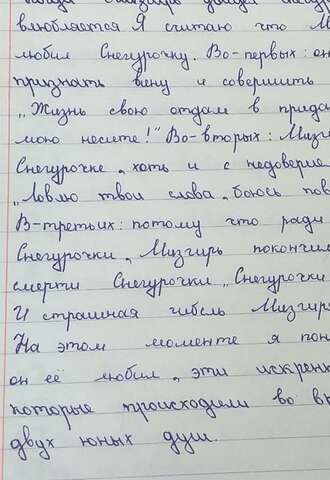 влюбляется Я считаю что М
любил Снегурочку. Во-первых: он
признать вину и совершить
„Жизнь свою отдам в прида
мою несите!" Во-вторых: Мизги
Снегурочке, хоть и с недоверие
„Ловлю твои слова, боюсь пов
В-третьих: потому что ради
Снегурочки, Мизгирь покончил
смерти Снегурочки „Снегурочки
И страшная гибель Мизгиря
На этом моменте я пон
он её любил, эти искренн
которые происходили во вн
двух юных душ.